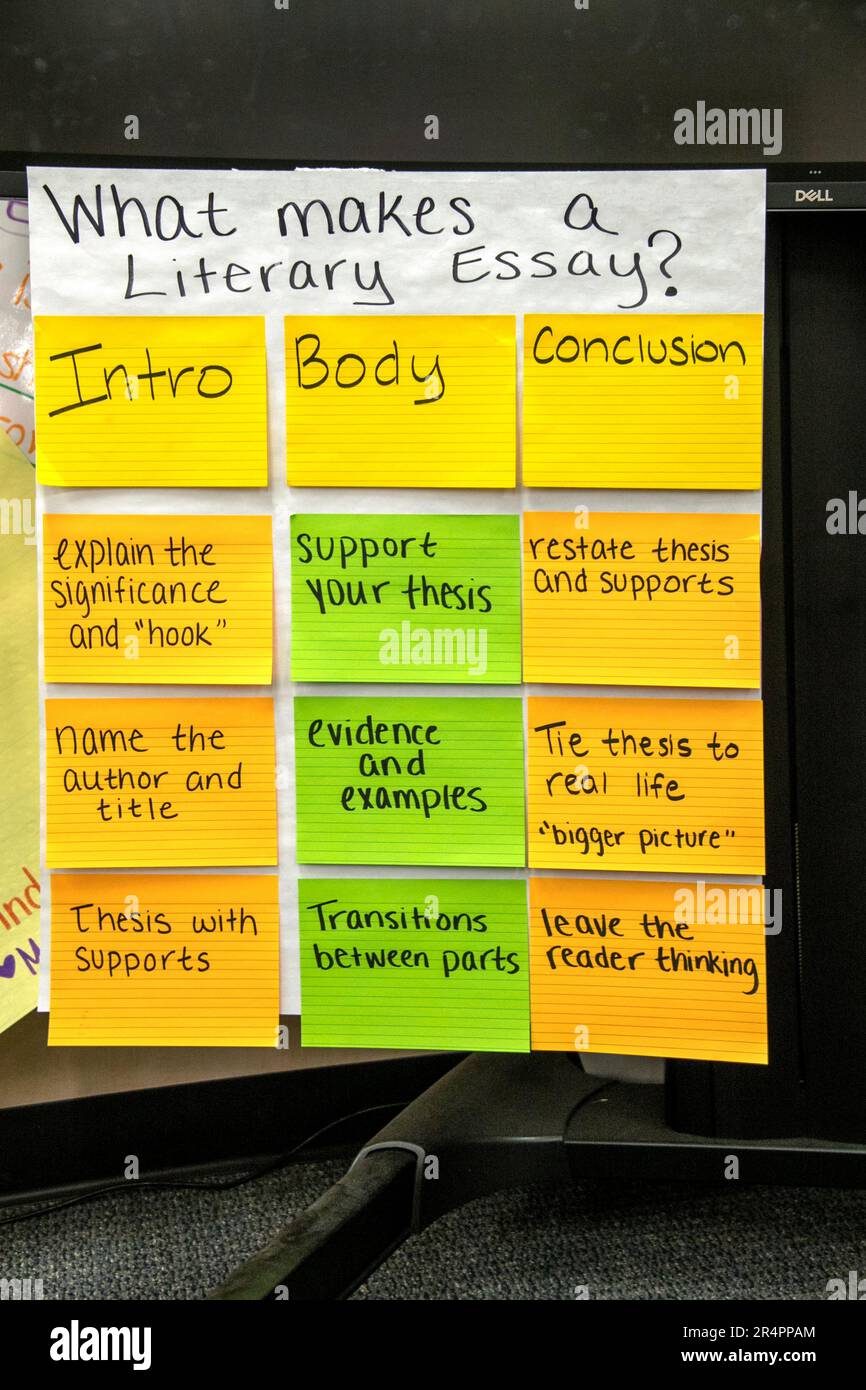 DELL
What makes a
Literary Essay?
Intro
Body
Conclusion
explain the
significance
and "hook"
support
your thesis
restate thesis
and supports
name the
author and
title
evidence
and
examples
Tie thesis to
real life
"bigger picture"
Thesis with
supports
Transitions
between parts
leave the
reader thinking
st
ind
alamy
Image ID: 2R4PPAM
www.alamy.com